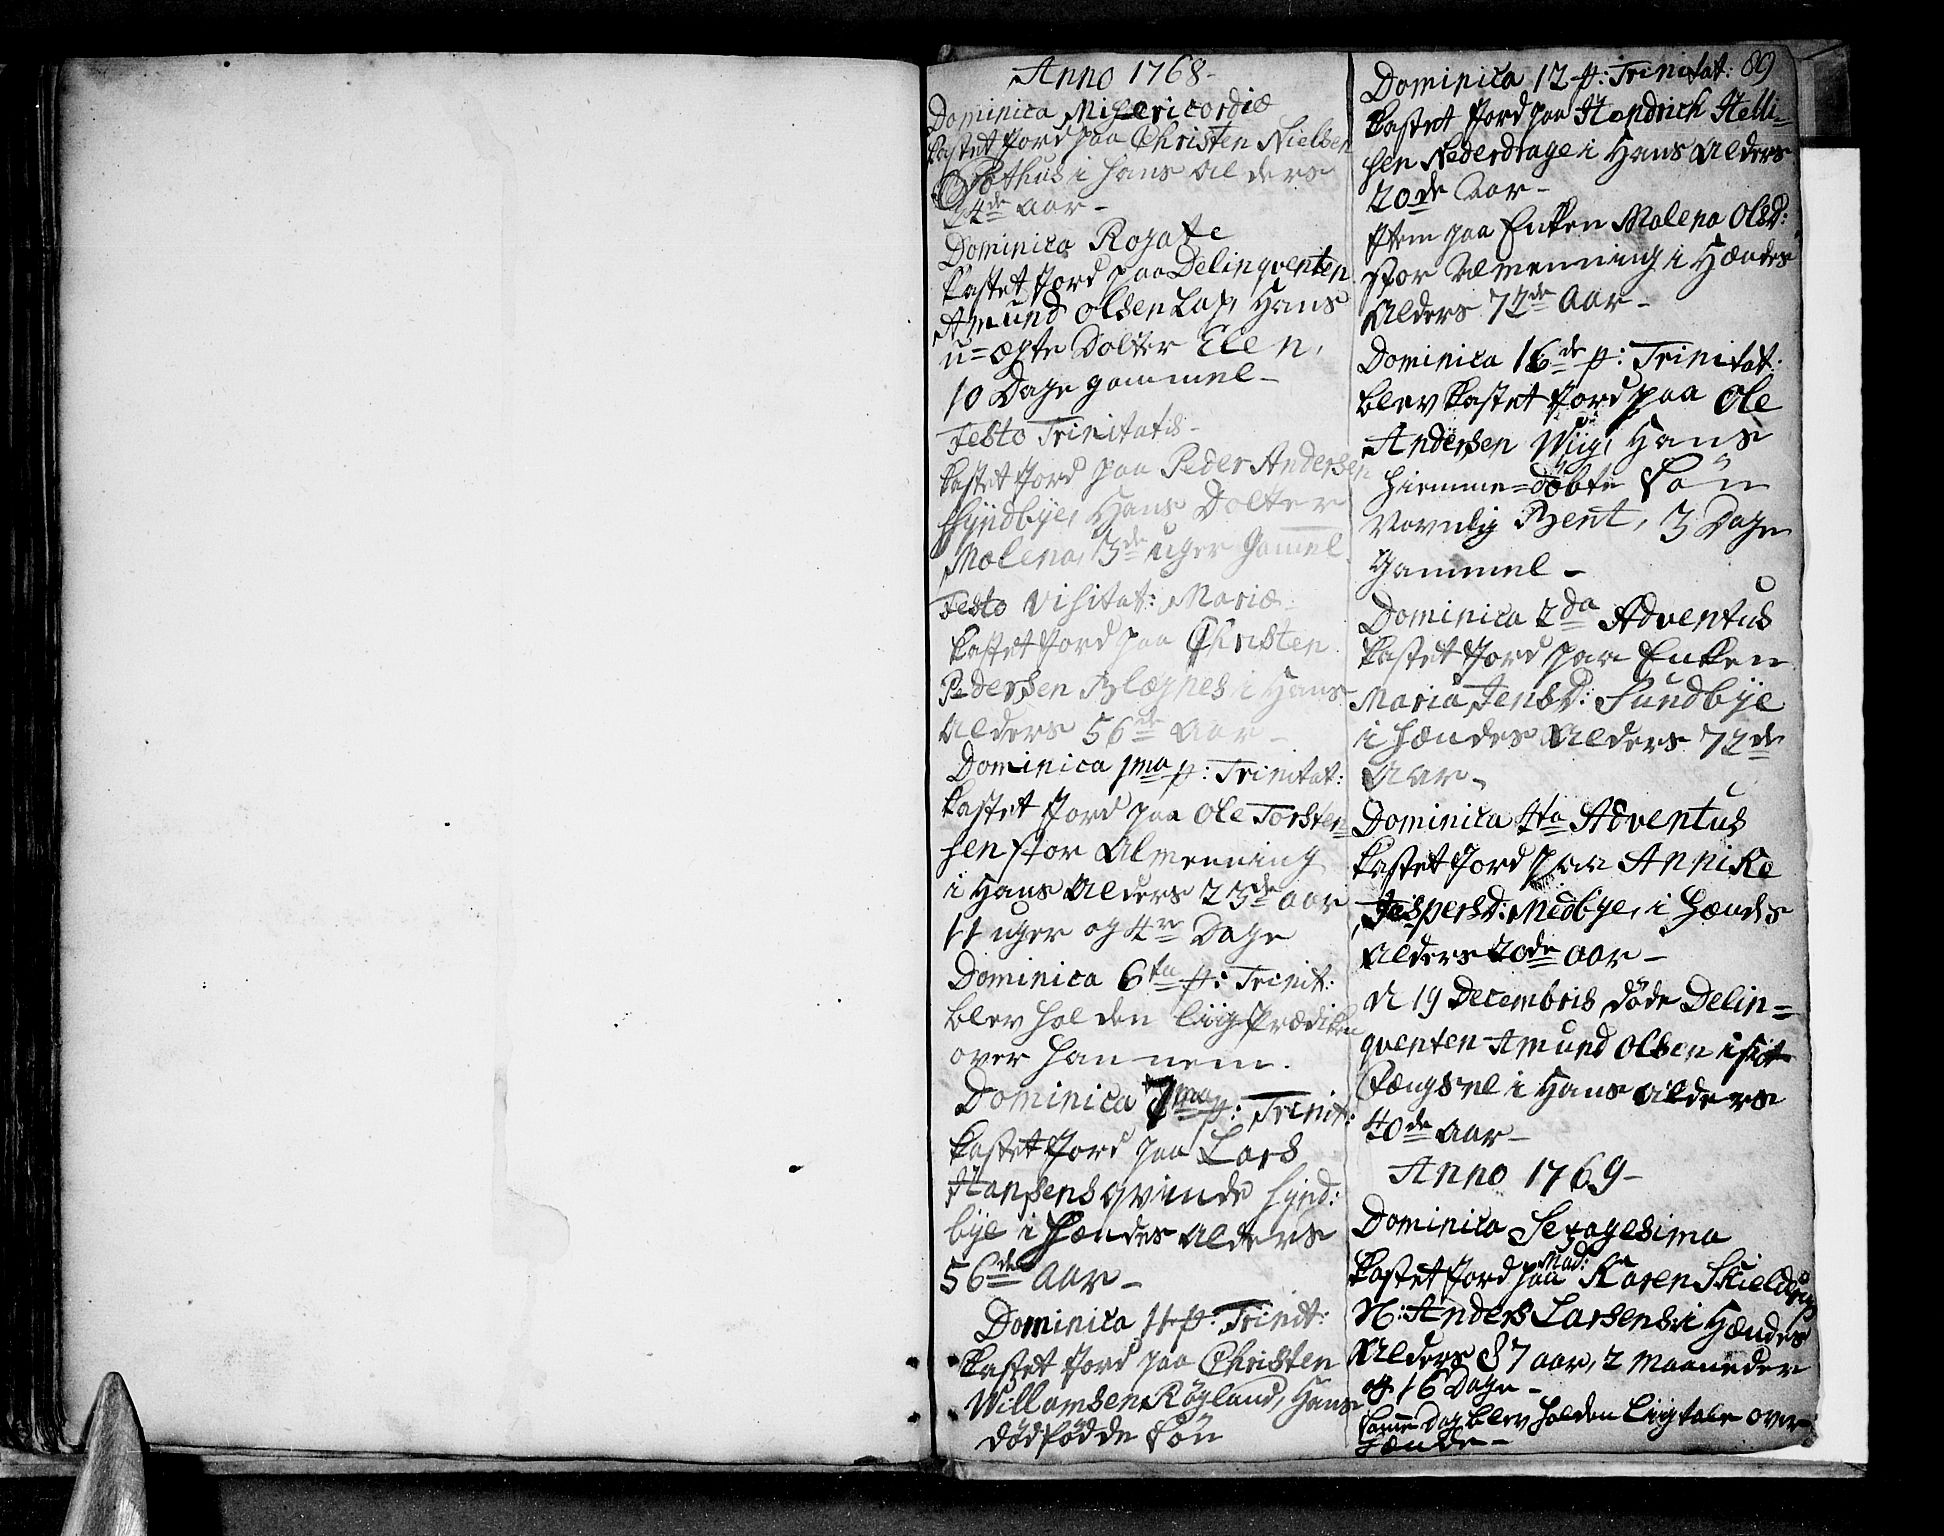 Anno 1768-
Dominica Misericordiæ
kastet Jord paa Christen Nielsen
i Hans Alders
4de Aar-
Dominica Rogate
kastet Jord paa Delinqventen
Amund Olsen Lax, Hans
u=ægte Dotter Elen,
10 Dage gammel-
Festo Trinitatis-
kastet Jord paa Peder Andersen
Syndbÿe, Hans Dotter
Malena, 3de uger Gamel
Festo Visitat: Mariæ-
kastet Jord paa Christen
Pedersen Blæsnes i Hans
Alders 56de Aar-
Dominica 1ma p: Trinitat:
kastet Jord paa Ole Torsten
sen stor Almenning
i Hans Alders 23de aar
11 uger og 4re Dage
Dominica 6ta p: Trinit:
blev holden liigPrædiken
over hannem.
Dominica 7ma p: Trinit:
kastet Jord paa Lars
Hansens qvinde Synd:
bÿe i Hændes Alders
56de Aar-
Dominica 11 p: Trinit:
kastet Jord paa Christen
Willamsen Røgland, Hans
dødfødde Søn
89
Dominica 12 p: Trinitat:
kastet Jord paa Hendrich Helli-
sen Nederdrage i Hans Alders
20de Aar-
Item paa Enken Malena Olsd:
stor Almenning i Hændes
Alders 72de Aar-
Dominica 16de p: Trinitat:
blev kastet Jord paa Ole
Andersen Wiig, Hans
hiemme=døbte Søn
Navnlig Bent, 3 Dage
Gammel-
Dominica 2da Adventus
kastet Jord paa Enken
Maria Jensd: Sundbÿe
i Hændes Alders 72de
Aar-
Dominica 4ta Adventus
kastet Jord paa Annike
Jespersd: Medbye, i Hændes
Alders 20de aar-
d 19 Decembris døde Delin=
qventen Amund Olsen i sit
Fængsel i Hans Alders
40de aar-
Anno 1769-
Dominica Sexagesima
kastet Jord paa Mad: Karen Skieldrup
N: Anders Larsens i Hændes
Alders 87 aar, 2 Maaneder
og 16 Dage-
Samme Dag blev holden Ligtale over
Hænde-